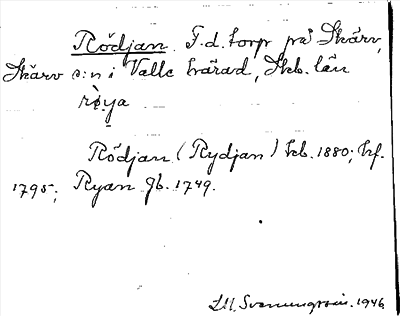 Rödjan F.d. torp på Skärv,
Skärv s:n i Valle härad, Skb. län
rø̀ya
Rödjan (Rydjan) kb. 1880; hf.
1795; Ryan gb. 1749.
L.M. Svenungsson. 1946